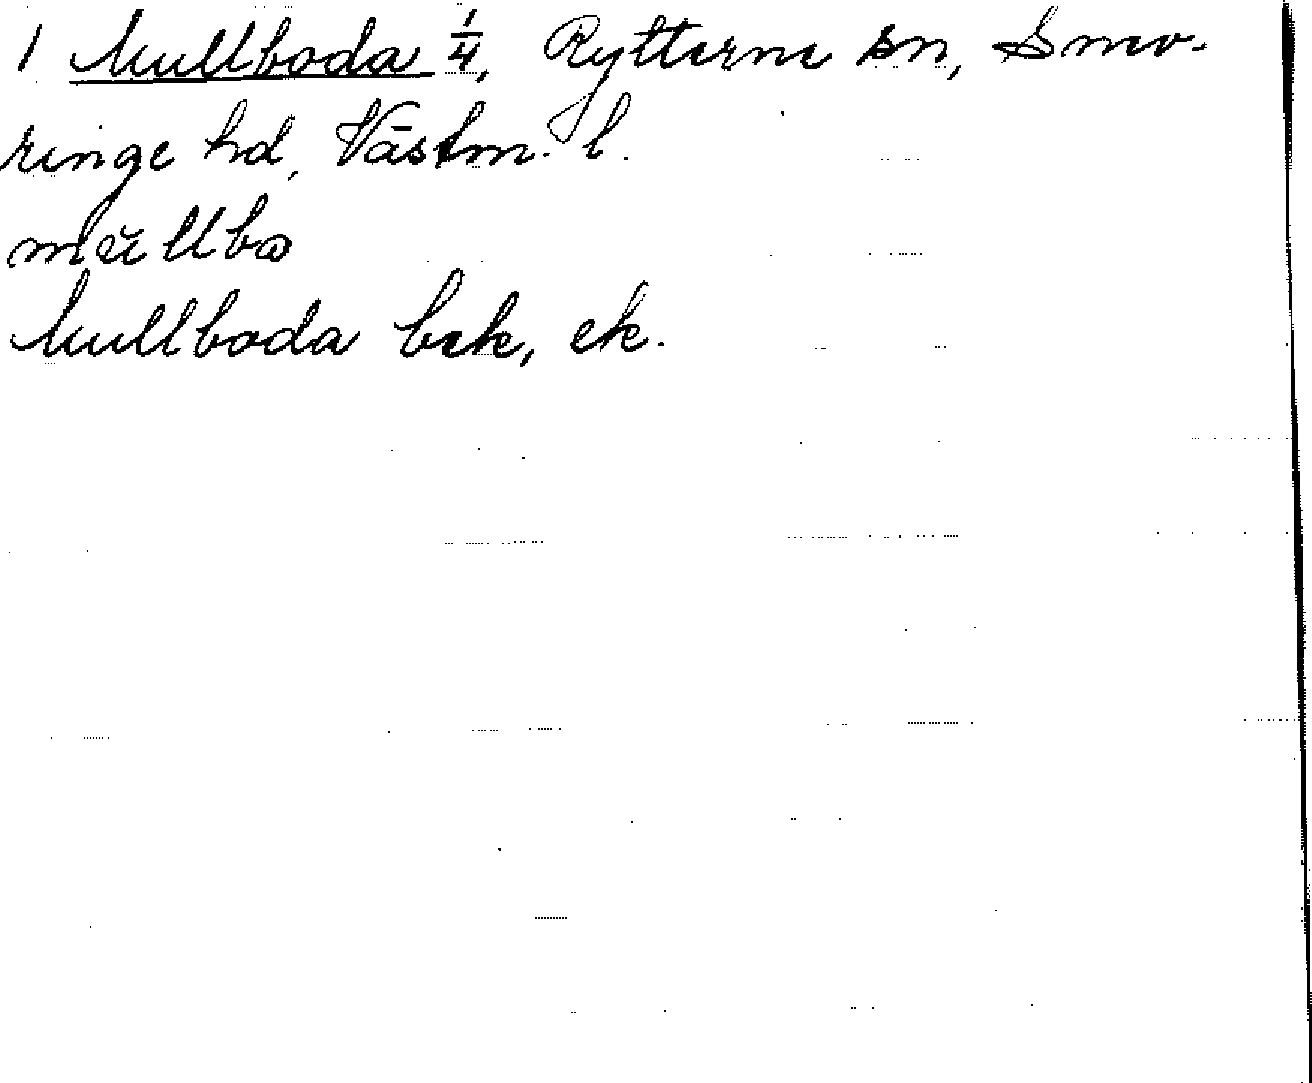 1 Mullboda 1/4, Rytterne sn, Snev-
ringe hd, Västm. l.
Mullboda bek, ek.